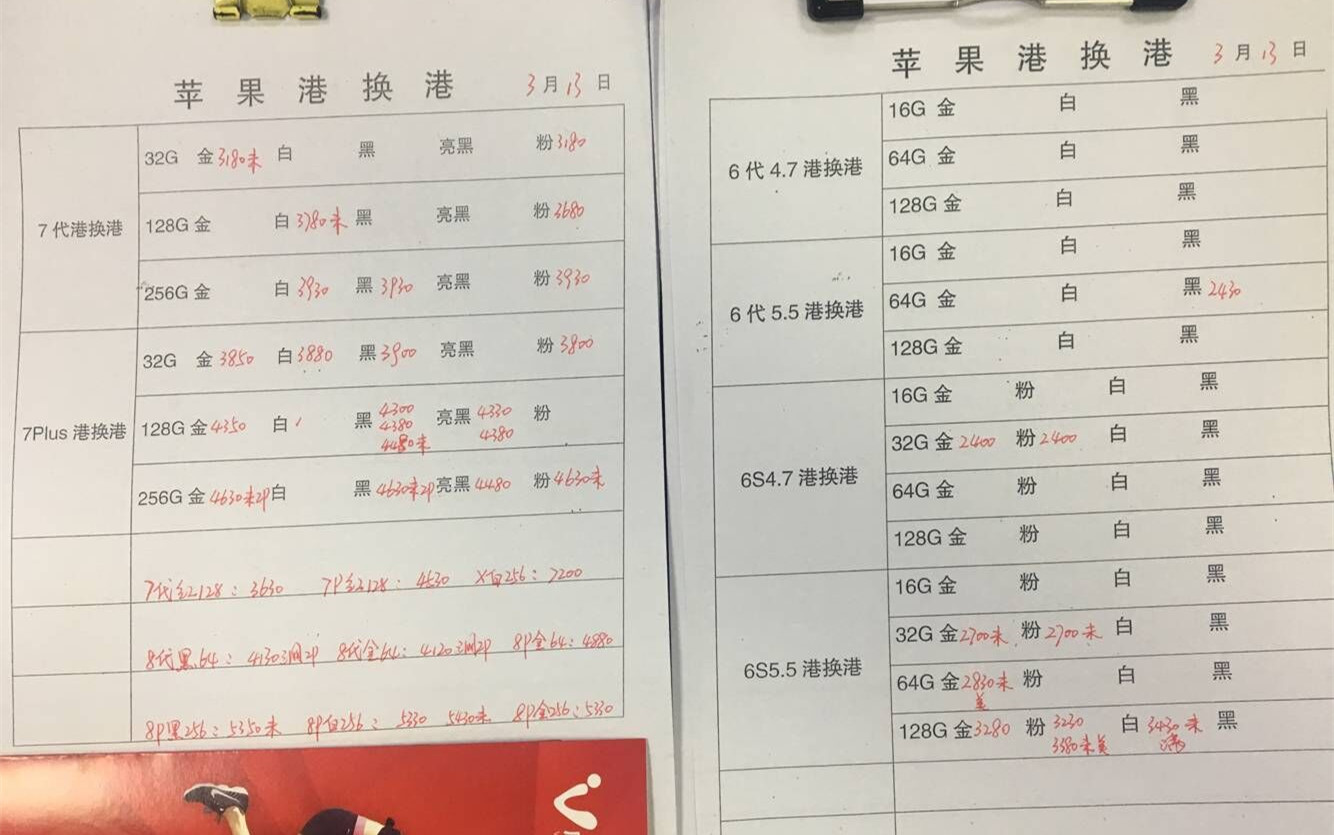 苹果港换港 3月13日
7代港换港
32G 金3180未 白 黑 亮黑 粉3180
128G金 白3780未 黑 亮黑 粉3680
256G金 白3930 黑3930 亮黑 粉3930
7Plus 港换港
32G 金3850 白3880 黑3900 亮黑 粉3800
128G金4350 白 黑4300 4380 4480未 亮黑4330 4380 粉
256G金4630未2P 白 黑4630未2P 亮黑4480 粉4630未
7代红128：3630 7P红128：4530 X白256：7200
8代黑64：4130三网2P 8代金64：4120三网2P 8P金64：4880
8P黑256：5350未 8P白256：5330 5430未 8P金256：5330
苹果港换港 3月13日
6代4.7港换港
16G 金 白 黑
64G 金 白 黑
128G金 白 黑
6代5.5港换港
16G 金 白 黑
64G 金 白 黑2430
128G金 白 黑
6S4.7港换港
16G金 粉 白 黑
32G金2400 粉2400 白 黑
64G金 粉 白 黑
128G金 粉 白 黑
6S5.5港换港
16G金 粉 白 黑
32G金2700未 粉2700未 白 黑
64G金2830未美 粉 白 黑
128G金3280 粉3230 3380未美 白3430未满 黑